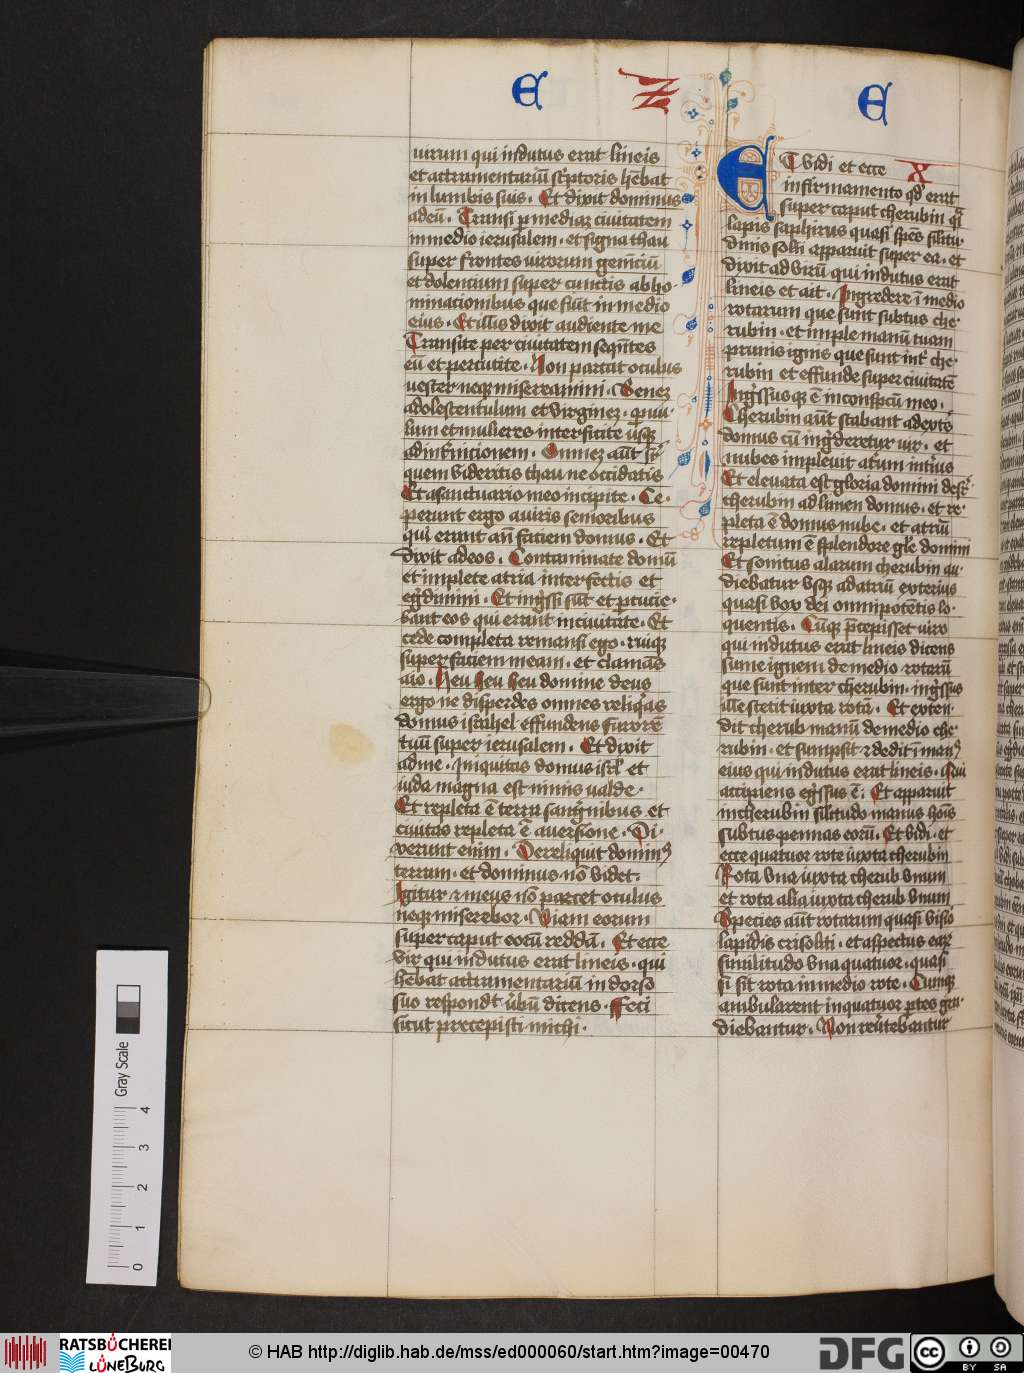 E Z E
uirum qui indutus erat lineis
et attramentariū sc̄ptoris hēbat
in lumbis suis. Et dixit dominus
ad eū. Transi ꝑ mediaʒ ciuitatem
in medio ierusalem. et signa thau
super frontes uirorum gemēciū
et dolencium super cunctis abho-
minacionibus que fiūt in medio
eius. Et illis dixit audiente me
Transite per ciuitatem seqn̄tes
eū et percutite. Non parcat oculus
uester neqʒ misereamini. Seneʒ
adolescentulum et virgineʒ. ꝑuu-
lum et mulieres interficite usqʒ
ad int̄ncionem. Omneʒ aūt sr̄
quem videritis thau ne occidatis
Et a sanctuario meo incipite. Ce-
perunt ergo a uiris senioribus
qui erant an̄ faciem domus. Et
dixit ad eos. Contaminate domū
et implete atria interfectis et
eg̃dimini. Et ing̃ssi sūt et ꝑcucie-
bant eos qui erant in ciuitate. Et
cede completa remansi ego. ruiqʒ
super faciem meam. et clamās
aio. Heu heu heu domine deus
ergo ne disperdes omnes reliq̄as
domus israhel effundens furorē
tuū super ierusalem. Et dixit
ad me. Iniquitas domus isrl̄ et
iuda magna est nimis ualde.
Et repleta ē terra sang̃nibus et
ciuitas repleta ē auersione. Di-
xerunt enim. Dereliquit dominꝰ
terram. et dominus nō videt.
Igitur ⁊ meus nō parcet oculus
neqʒ miserebor. Viam eorum
super caput eorū reddā. Et ecce
vir qui indutus erat lineis. qui
hēbat attramentarium in dorso
suo respondt̄ ūbū dicens. Feci
sicut precepisti michi.
X
ET vidi et ecce
in firmamento qd̄ erat
super caput cherubin qͣ
lapis saphirus quasi spēs silitu-
dinis solij apparuit super ea. et
dixit ad virū qui indutus erat
lineis et ait. Ingredere ī medio
rotarum que sunt subtus che-
rubin. et imple manū tuam
prunis ignis que sunt int̄ che-
rubin et effunde super ciuitatē
Ing̃ssusqʒ ē in conspc̄u meo.
Cherubin aūt stabant a dext̄s
domus cū ing̃deretur uir. et
nubes impleuit at̄um int̄ius
Et eleuata est gloria domini desr̄
cherubin ad limen domus. et re-
pleta ē domus nube. et atriū
repletum ē splendore gl̄e domini
Et sonitus alarum cherubin au-
diebatur vsqʒ ad atriū exterius
quasi vox dei omnipotētis lo-
quentis. Cūqʒ p̄cepisset uiro
qui indutus erat lineis dicens
sume ignem de medio rotarū
que sunt inter cherubin. ing̃ssus
ille stetit iuxta rotā. Et exten-
dit cherub manū de medio che-
rubin. et sumpsit ⁊ dedit ī manꝰ
eius qui indutus erat lineis. Qui
accipiens eg̃ssus ē. Et apparuit
in cherubin silitudo manus hōis
subtus pennas eorū. Et vidi. et
ecce quatuor rote iuxta cherubin
Rota vna iuxta cherub vnum
et rota alia iuxta cherub vnum
Species aūt rotarum quasi visio
lapidis crisoliti. et aspectus eaꝝ
similitudo vna quatuor. quasi
si sit rota in medio rote. Cumqʒ
ambularent in quatuor ꝑtes gra-
diebantur. Non reūtebantur
Gray Scale
4
3
2
1
0
RATSBÜCHEREI LÜNEBURG
© HAB http://diglib.hab.de/mss/ed000060/start.htm?image=00470
DFG
cc BY SA